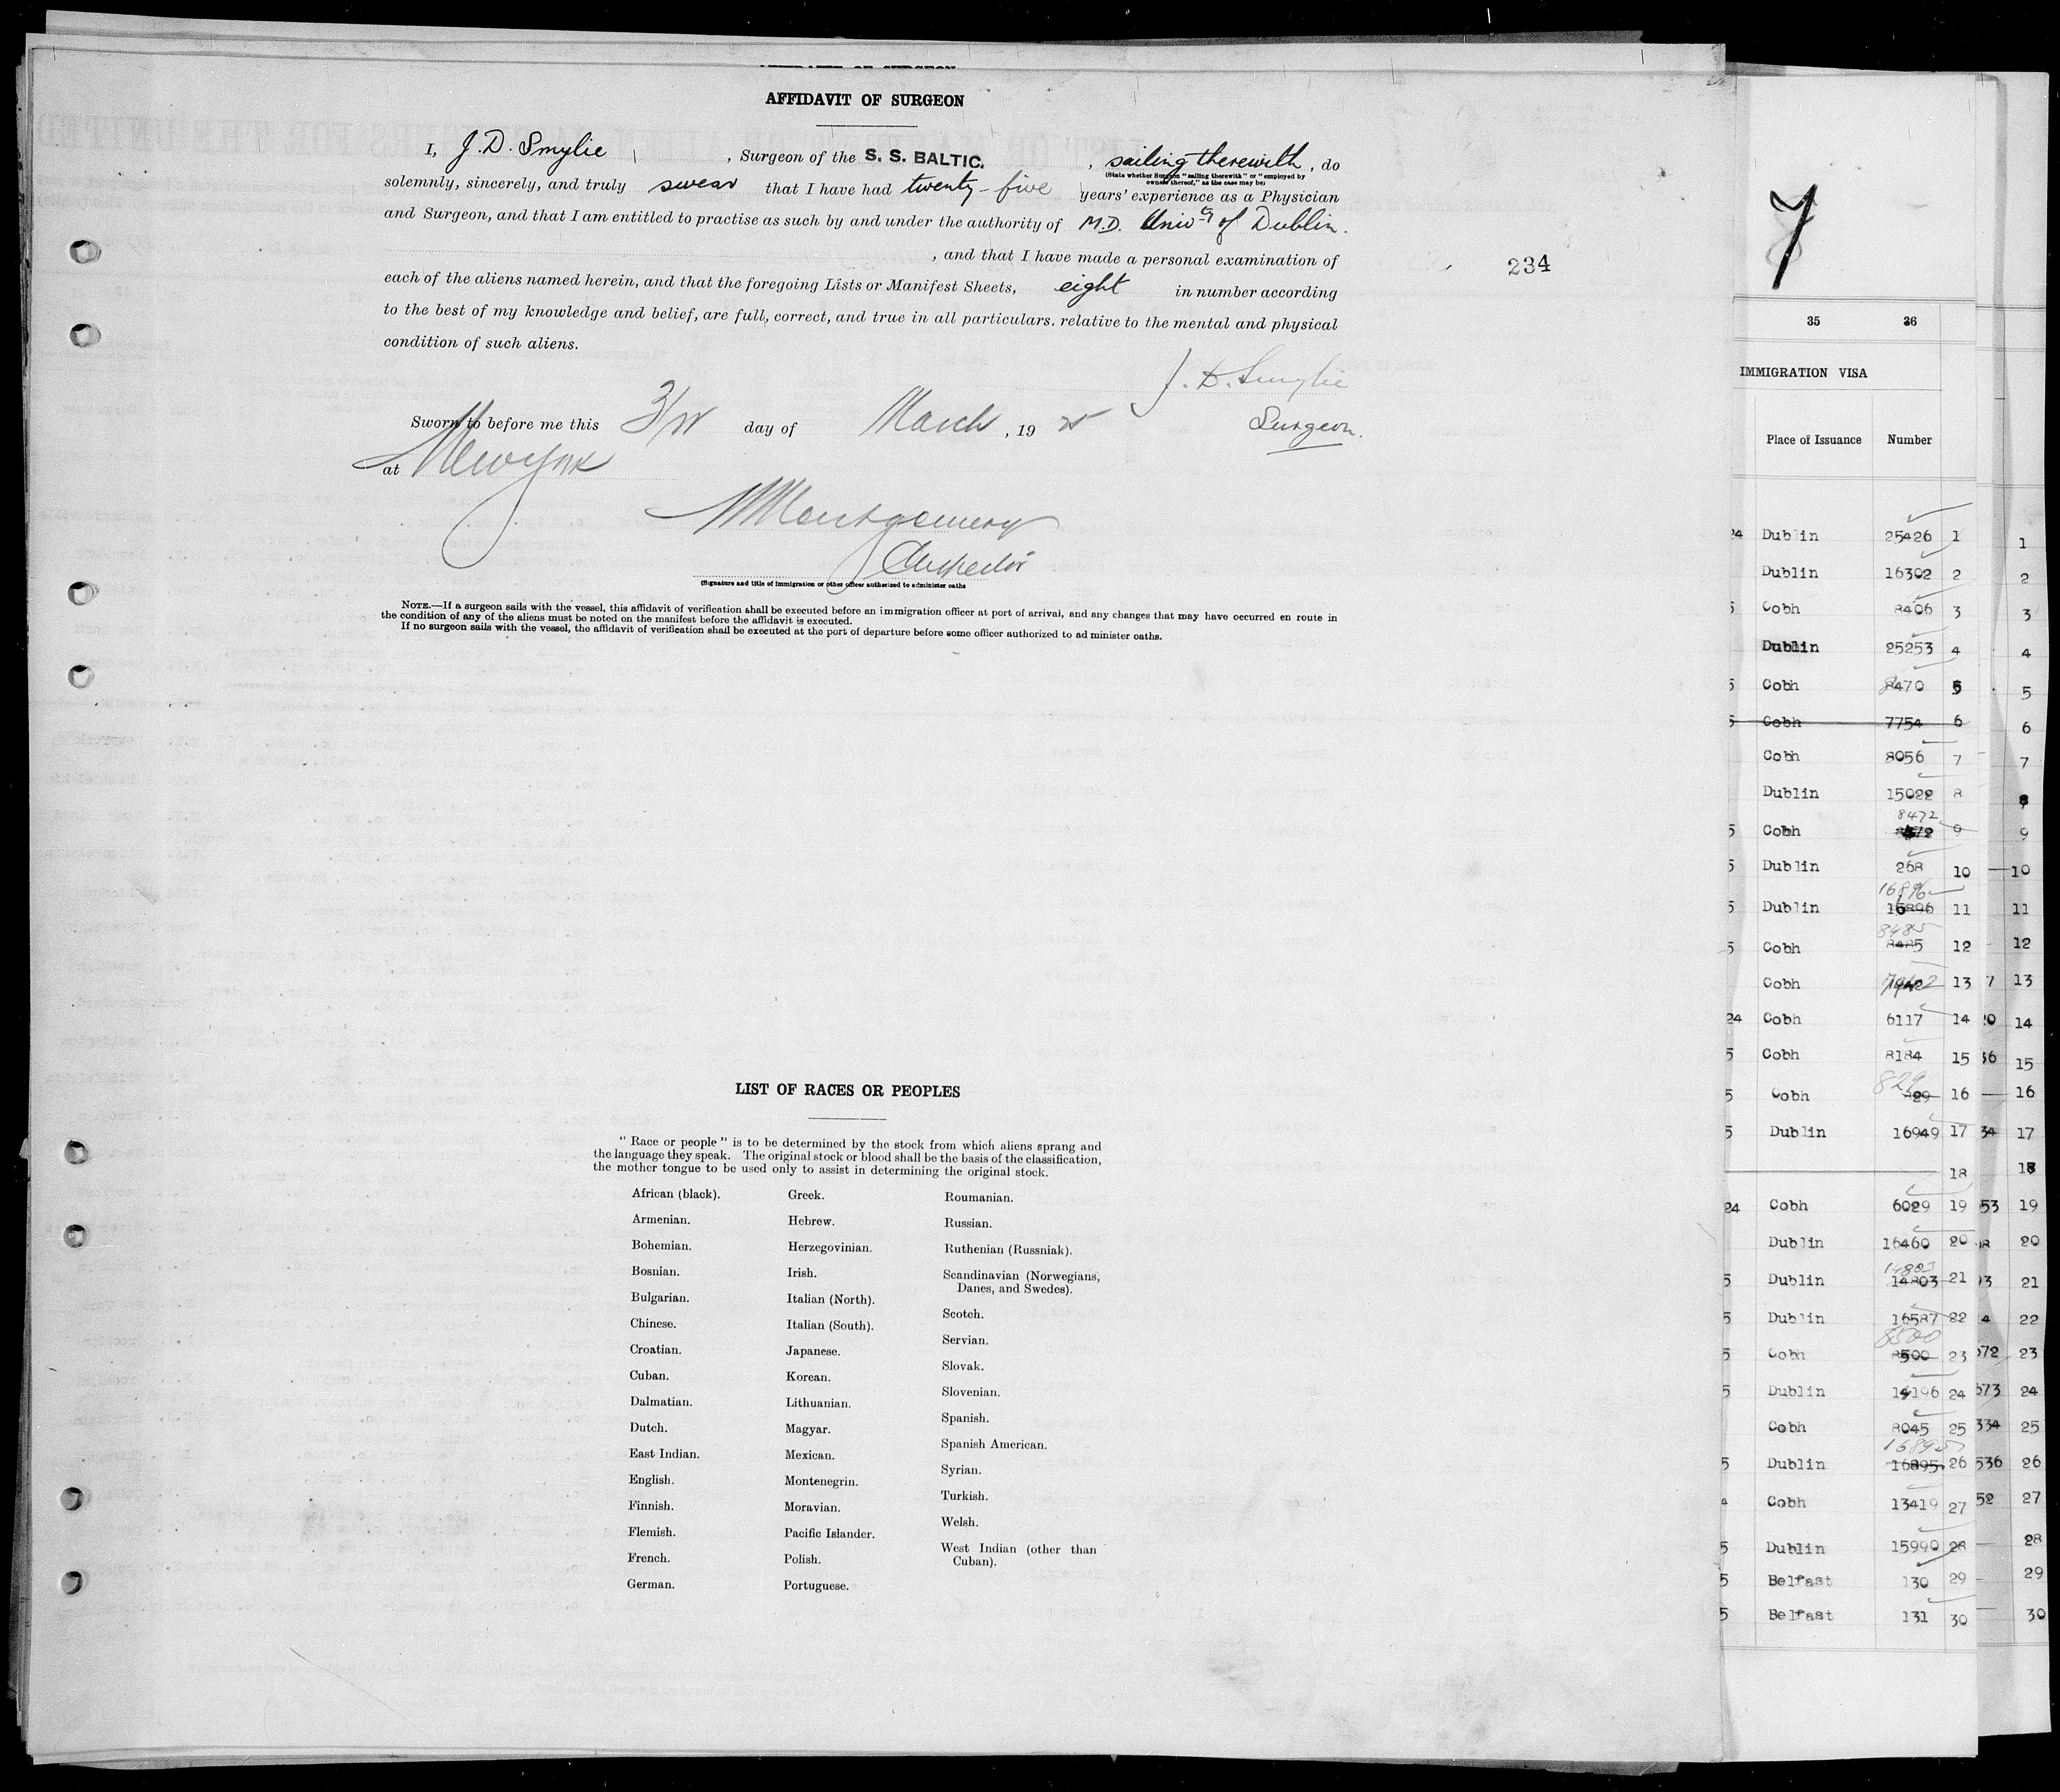 AFFIDAVIT OF SURGEON
I, J. D. Smylie , Surgeon of the S. S. BALTIC. , sailing therewith, do
(State whether Surgeon "sailing therewith" or "employed by
owners thereof," as the case may be)
solemnly, sincerely, and truly swear that I have had twenty-five years' experience as a Physician
and Surgeon, and that I am entitled to practise as such by and under the authority of M.D. Univ of Dublin.
, and that I have made a personal examination of
each of the aliens named herein, and that the foregoing Lists or Manifest Sheets, eight in number according
to the best of my knowledge and belief, are full, correct, and true in all particulars. relative to the mental and physical
condition of such aliens.
J. D. Smylie
Surgeon.
Sworn to before me this day of March , 19
at New York
Montgomery
Inspector
(Signature and title of immigration or other officer authorized to administer oaths
NOTE.—If a surgeon sails with the vessel, this affidavit of verification shall be executed before an immigration officer at port of arrival, and any changes that may have occurred en route in
the condition of any of the aliens must be noted on the manifest before the affidavit is executed.
If no surgeon sails with the vessel, the affidavit of verification shall be executed at the port of departure before some officer authorized to ad minister oaths.
234
LIST OF RACES OR PEOPLES
"Race or people" is to be determined by the stock from which aliens sprang and
the language they speak. The original stock or blood shall be the basis of the classification,
the mother tongue to be used only to assist in determining the original stock.
African (black).
Armenian.
Bohemian.
Bosnian.
Bulgarian.
Chinese.
Croatian.
Cuban.
Dalmatian.
Dutch.
East Indian.
English.
Finnish.
Flemish.
French.
German.
Greek.
Hebrew.
Herzegovinian.
Irish.
Italian (North).
Italian (South).
Japanese.
Korean.
Lithuanian.
Magyar.
Mexican.
Montenegrin.
Moravian.
Pacific Islander.
Polish.
Portuguese.
Roumanian.
Russian.
Ruthenian (Russniak).
Scandinavian (Norwegians,
Danes, and Swedes).
Scotch.
Servian.
Slovak.
Slovenian.
Spanish.
Spanish American.
Syrian.
Turkish.
Welsh.
West Indian (other than
Cuban).
7
35 36
IMMIGRATION VISA
Place of Issuance Number
24 Dublin 25426 1 1
Dublin 16302 2 2
5 Cobh 8406 3 3
Dublin 25253 4 4
5 Cobh 8470 5 5
5 Cobh 7754 6 6
Cobh 8056 7 7
Dublin 15022 8 8
8472
5 Cobh 9 9
5 Dublin 268 10 10
16896
5 Dublin 16896 11 11
8485
5 Cobh 8485 12 12
Cobh 13 7 13
24 Cobh 6117 14 20 14
5 Cobh 8184 15 36 15
829
5 Cobh 29 16 16
5 Dublin 16949 17 34 17
18 18
24 Cobh 6029 19 53 19
Dublin 16460 20 20
14803
5 Dublin 14803 21 93 21
5 Dublin 16587 22 4 22
8500
5 Cobh 8500 23 572 23
5 Dublin 14196 24 573 24
Cobh 8045 25 334 25
16895
5 Dublin 16895 26 536 26
4 Cobh 13419 27 52 27
5 Dublin 15990 28 28
5 Belfast 130 29 29
5 Belfast 131 30 30